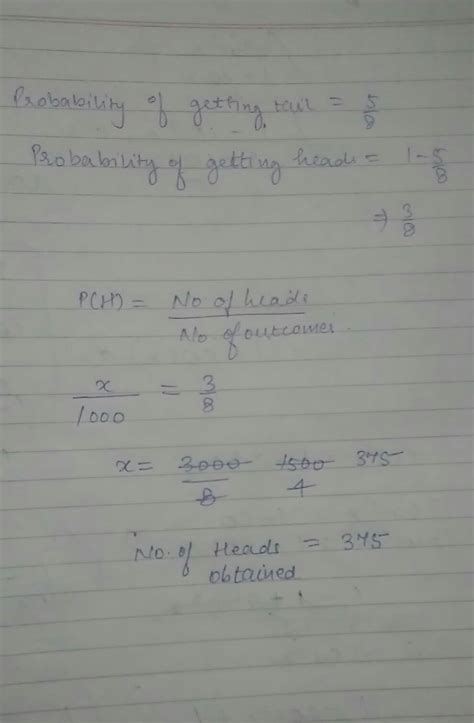 Probability of getting tail = 5/8
Probability of getting heads = 1 - 5/8
⇒ 3/8
P(H) = No of heads / No of outcomes.
x/1000 = 3/8
x = 3000/8 1500/4 375
No. of Heads = 375
obtained